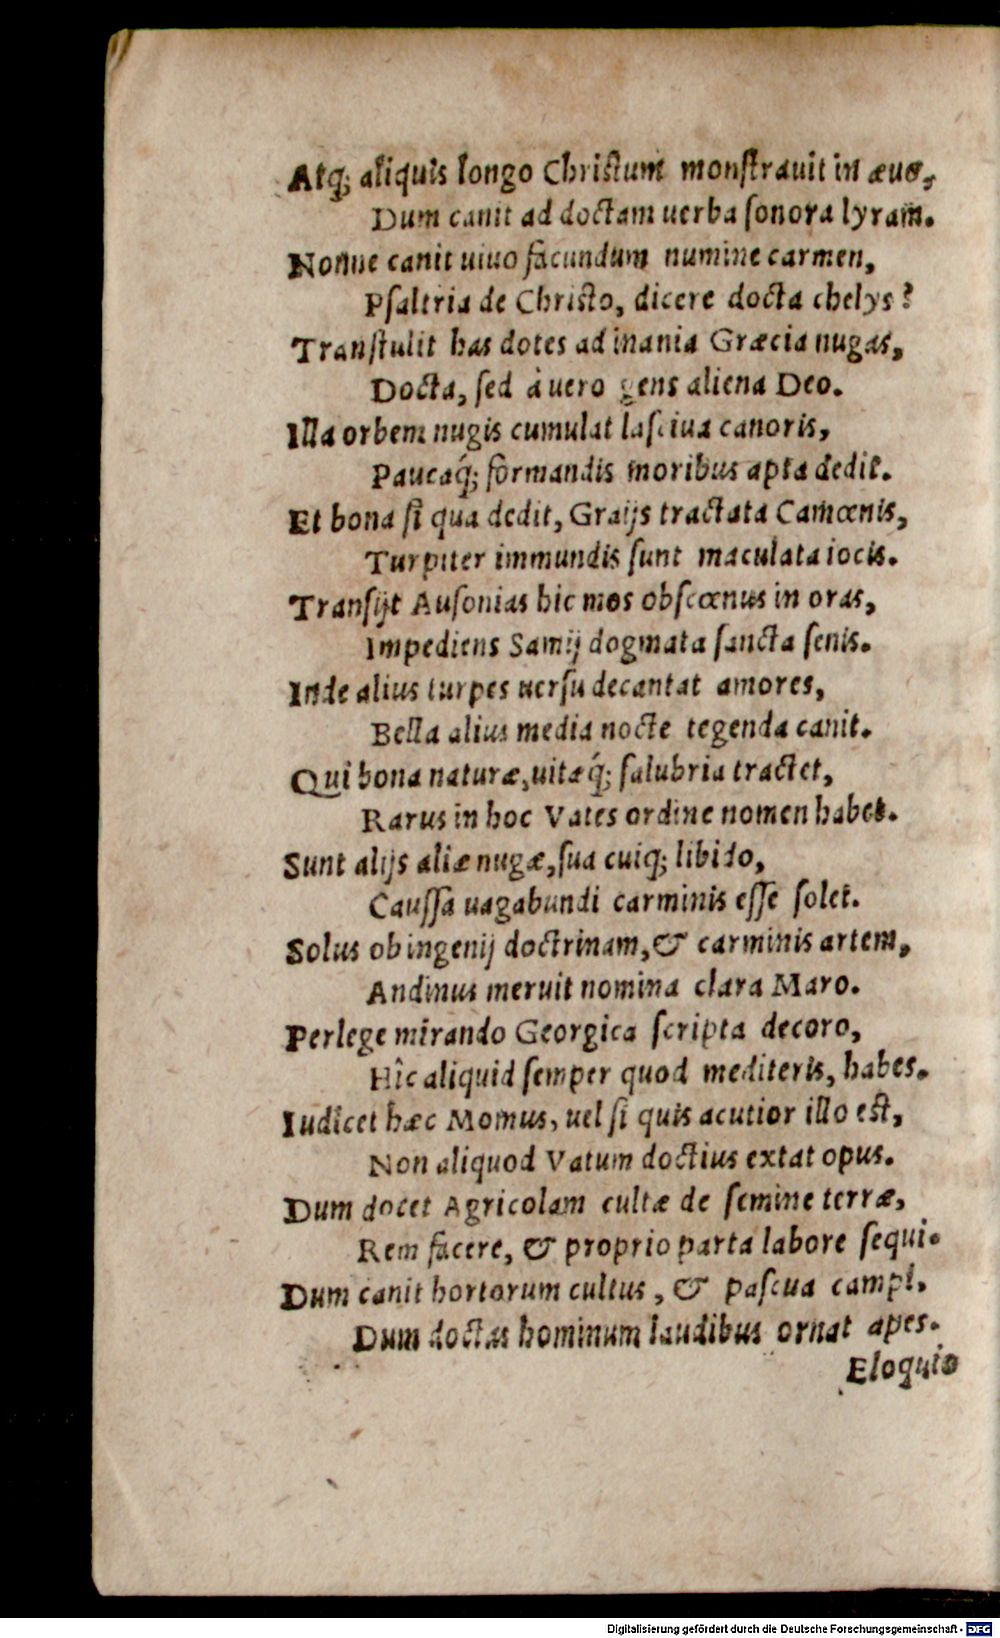 Atq́; aliquis longo Chriſtum monſtrauit in æuo,
Dum canit ad doctam uerba ſonora lyram.
Nonne canit uiuo facundum numine carmen,
Pſaltria de Chriſto, dicere docta chelys?
Tranſtulit has dotes ad inania Græcia nugas,
Docta, ſed à uero gens aliena Deo.
Illa orbem nugis cumulat laſciua canoris,
Paucaq́; formandis moribus apta dedit.
Et bona ſi qua dedit, Graijs tractata Camœnis,
Turpiter immundis ſunt maculata iocis.
Tranſijt Auſonias hic mos obſcœnus in oras,
Impediens Samij dogmata ſancta ſenis.
Inde alius turpes uerſu decantat amores,
Bella alius media nocte tegenda canit.
Qui bona naturæ, uitæq́; ſalubria tractet,
Rarus in hoc Vates ordine nomen habet.
Sunt alijs aliæ nugæ, ſua cuiq; libido,
Cauſſa uagabundi carminis eſſe ſolet.
Solus ob ingenij doctrinam, & carminis artem,
Andinus meruit nomina clara Maro.
Perlege mirando Georgica ſcripta decoro,
Hîc aliquid ſemper quod mediteris, habes.
Iudicet hæc Momus, uel ſi quis acutior illo eſt,
Non aliquod Vatum doctius extat opus.
Dum docet Agricolam cultæ de ſemine terræ,
Rem facere, & proprio parta labore ſequi.
Dum canit hortorum cultus, & paſcua campi,
Dum doctas hominum laudibus ornat apes.
Eloquio
Digitalisierung gefördert durch die Deutsche Forschungsgemeinschaft - DFG